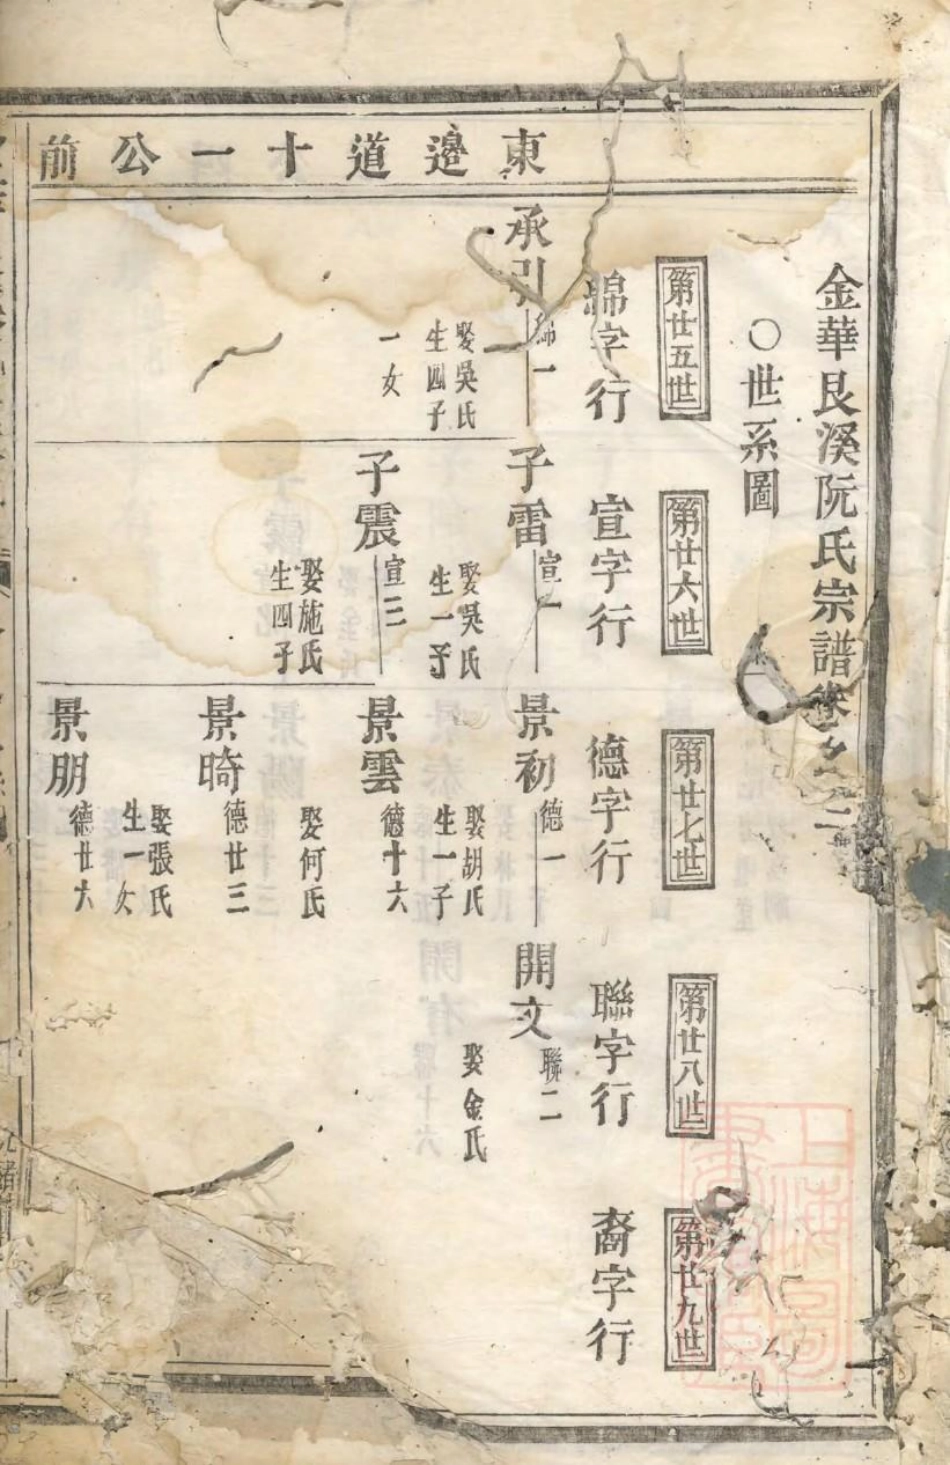 東邊道十一公前
金華艮溪阮氏宗譜卷之二
○世系圖
第廿五世
第廿六世
第廿七世
第廿八世
第廿九世
綿字行
宣字行
德字行
聯字行
裔字行
承引
綿一
娶吳氏
生四子
一女
子雷
宣一
娶吳氏
生一子
子震
宣三
娶施氏
生四子
景初
德一
娶胡氏
生一子
景雲
德十六
娶何氏
景暘
德廿三
娶張氏
生一女
景朋
德廿六
開文
聯二
娶金氏